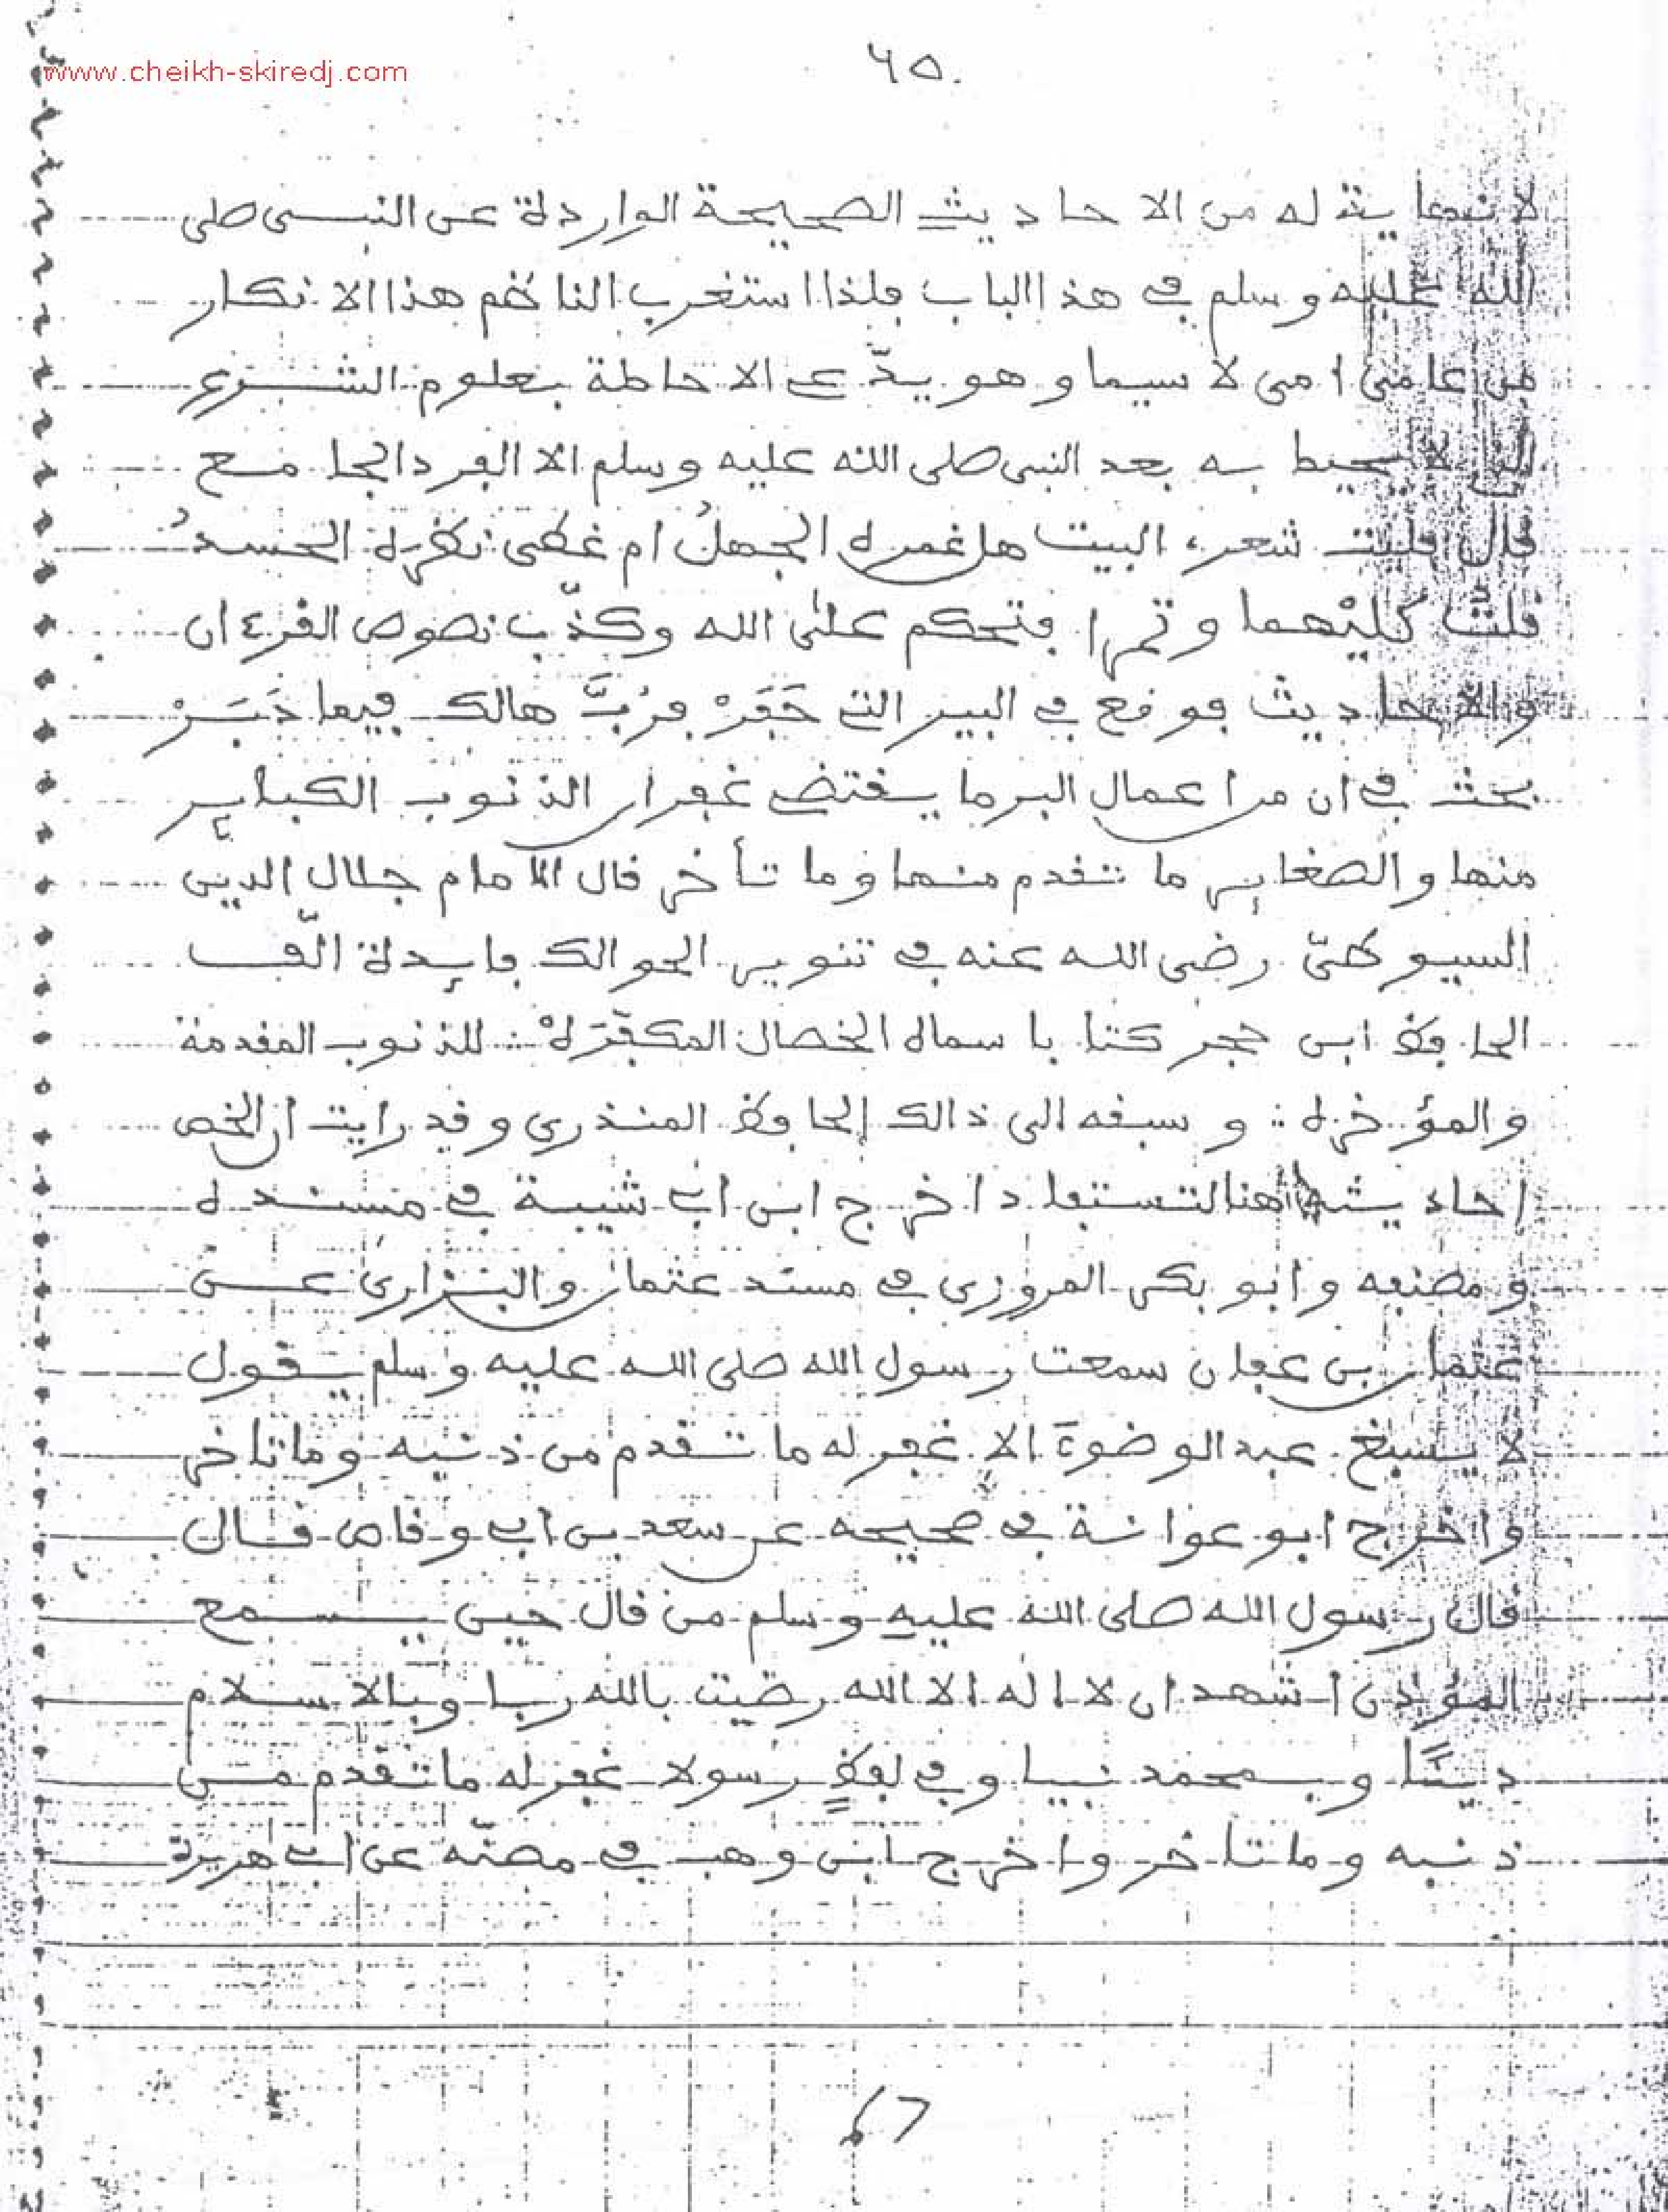 www.cheikh-skiredj.com
٦٥
لا نهاية له من الاحاديث الصحيحة الواردة عن النبي صلى
الله عليه وسلم في هذا الباب فلذا استغرب الناظم هذا الانكار
من عامي امي لا سيما وهو يدّعي الاحاطة بعلوم الشرع
التي لا يحيط به بعد النبي صلى الله عليه وسلم الا الفرد الجامع
قال فليت شعر، البيت هل غمره الجهلُ ام غطى نظره الحسدُ
قلت كليْهما وتمرا فتحكم على الله وكذّب نصوص القرءان
والاحاديث فوقع في البير التي حَفَرْ فرُبَّ هالك فيما دَبَرْ
بحث في ان من اعمال البر ما يقتضي غفران الذنوب الكباير
منها والصغاير ما تقدم منها وما تأخر قال الامام جلال الدين
السيوطيّ رضي الله عنه في تنوير الحوالك فايدة الّف
الحافظ ابن حجر كتابا سماه الخصال المكفّرَهْ :: للذنوب المقدمة
والمؤخره :: وسبقه الى ذالك الحافظ المنذري وقد رايت ان الخص
احاديثه هنا لتستفاد اخرج ابن ابي شيبة في مسنده
ومصنفه وابو بكر المروزي في مسند عثمان والبزاري عن
عثمان بن عفان سمعت رسول الله صلى الله عليه وسلم يقول
لا يسبغ عبد الوضوءَ الا غفر له ما تقدم من ذنبه وما تاخر
واخرج ابو عوانة في صحيحه عن سعد بن ابي وقاص قال
قال رسول الله صلى الله عليه وسلم من قال حين يسمع
المؤذن اشهد ان لا اله الا الله رضيت بالله ربا وبالاسلام
دينًا وبمحمد نبيا وفي لفظٍ رسولا غفر له ما تقدم من
ذنبه وما تاخر واخرج ابن وهب في مصنّه عن ابي هريرة